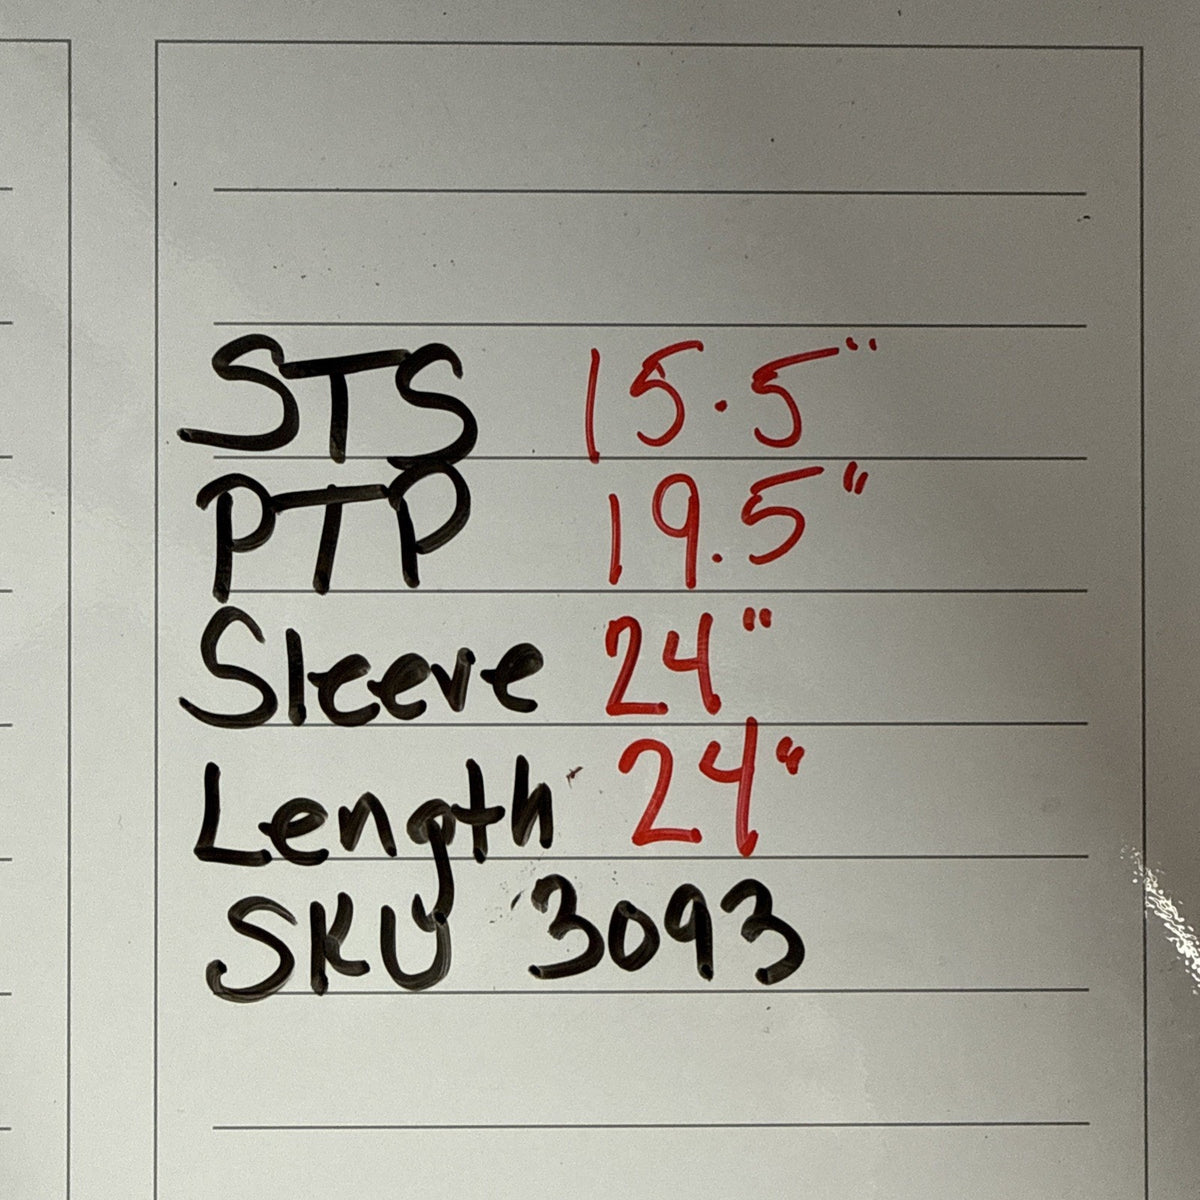 STS 15.5"
PTP 19.5"
Sleeve 24"
Length 24"
SKU 3093